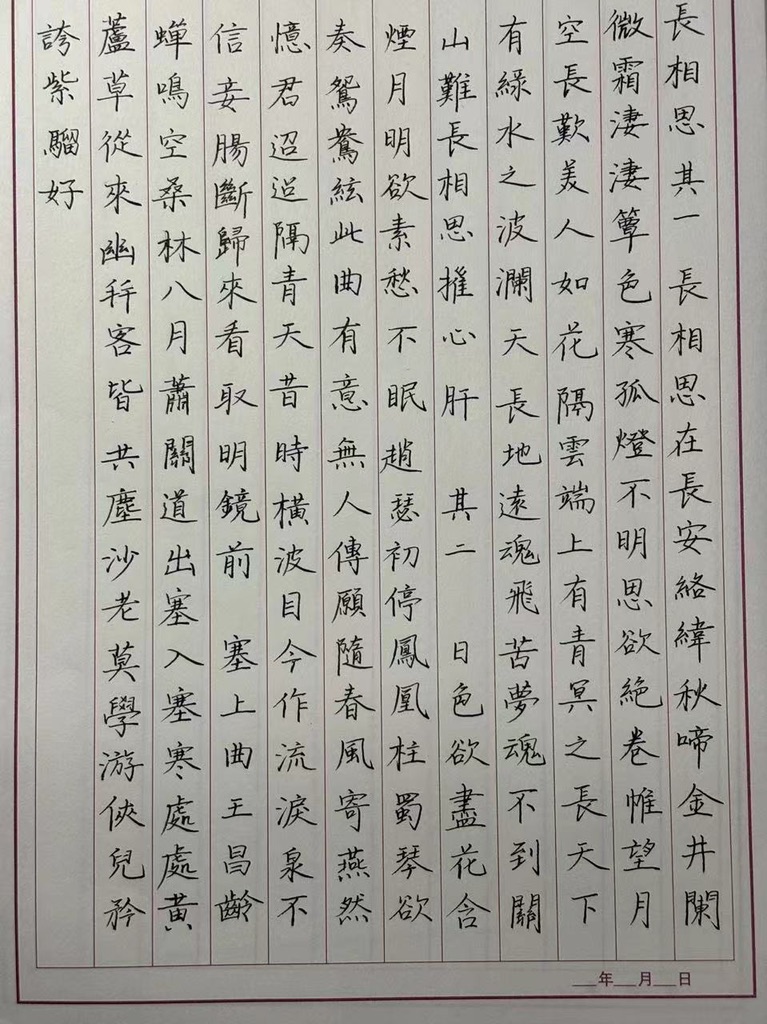 長相思其一 長相思在長安絡緯秋啼金井闌
微霜淒淒簟色寒孤燈不明思欲絕卷帷望月
空長歎美人如花隔雲端上有青冥之長天下
有綠水之波瀾天長地遠魂飛苦夢魂不到關
山難長相思摧心肝 其二 日色欲盡花含
煙月明欲素愁不眠趙瑟初停鳳凰柱蜀琴欲
奏鴛鴦絃此曲有意無人傳願隨春風寄燕然
憶君迢迢隔青天昔時橫波目今作流淚泉不
信妾腸斷歸來看取明鏡前 塞上曲王昌齡
蟬鳴空桑林八月蕭關道出塞入塞寒處處黃
蘆草從來幽幷客皆共塵沙老莫學游俠兒矜
誇紫騮好
年 月 日